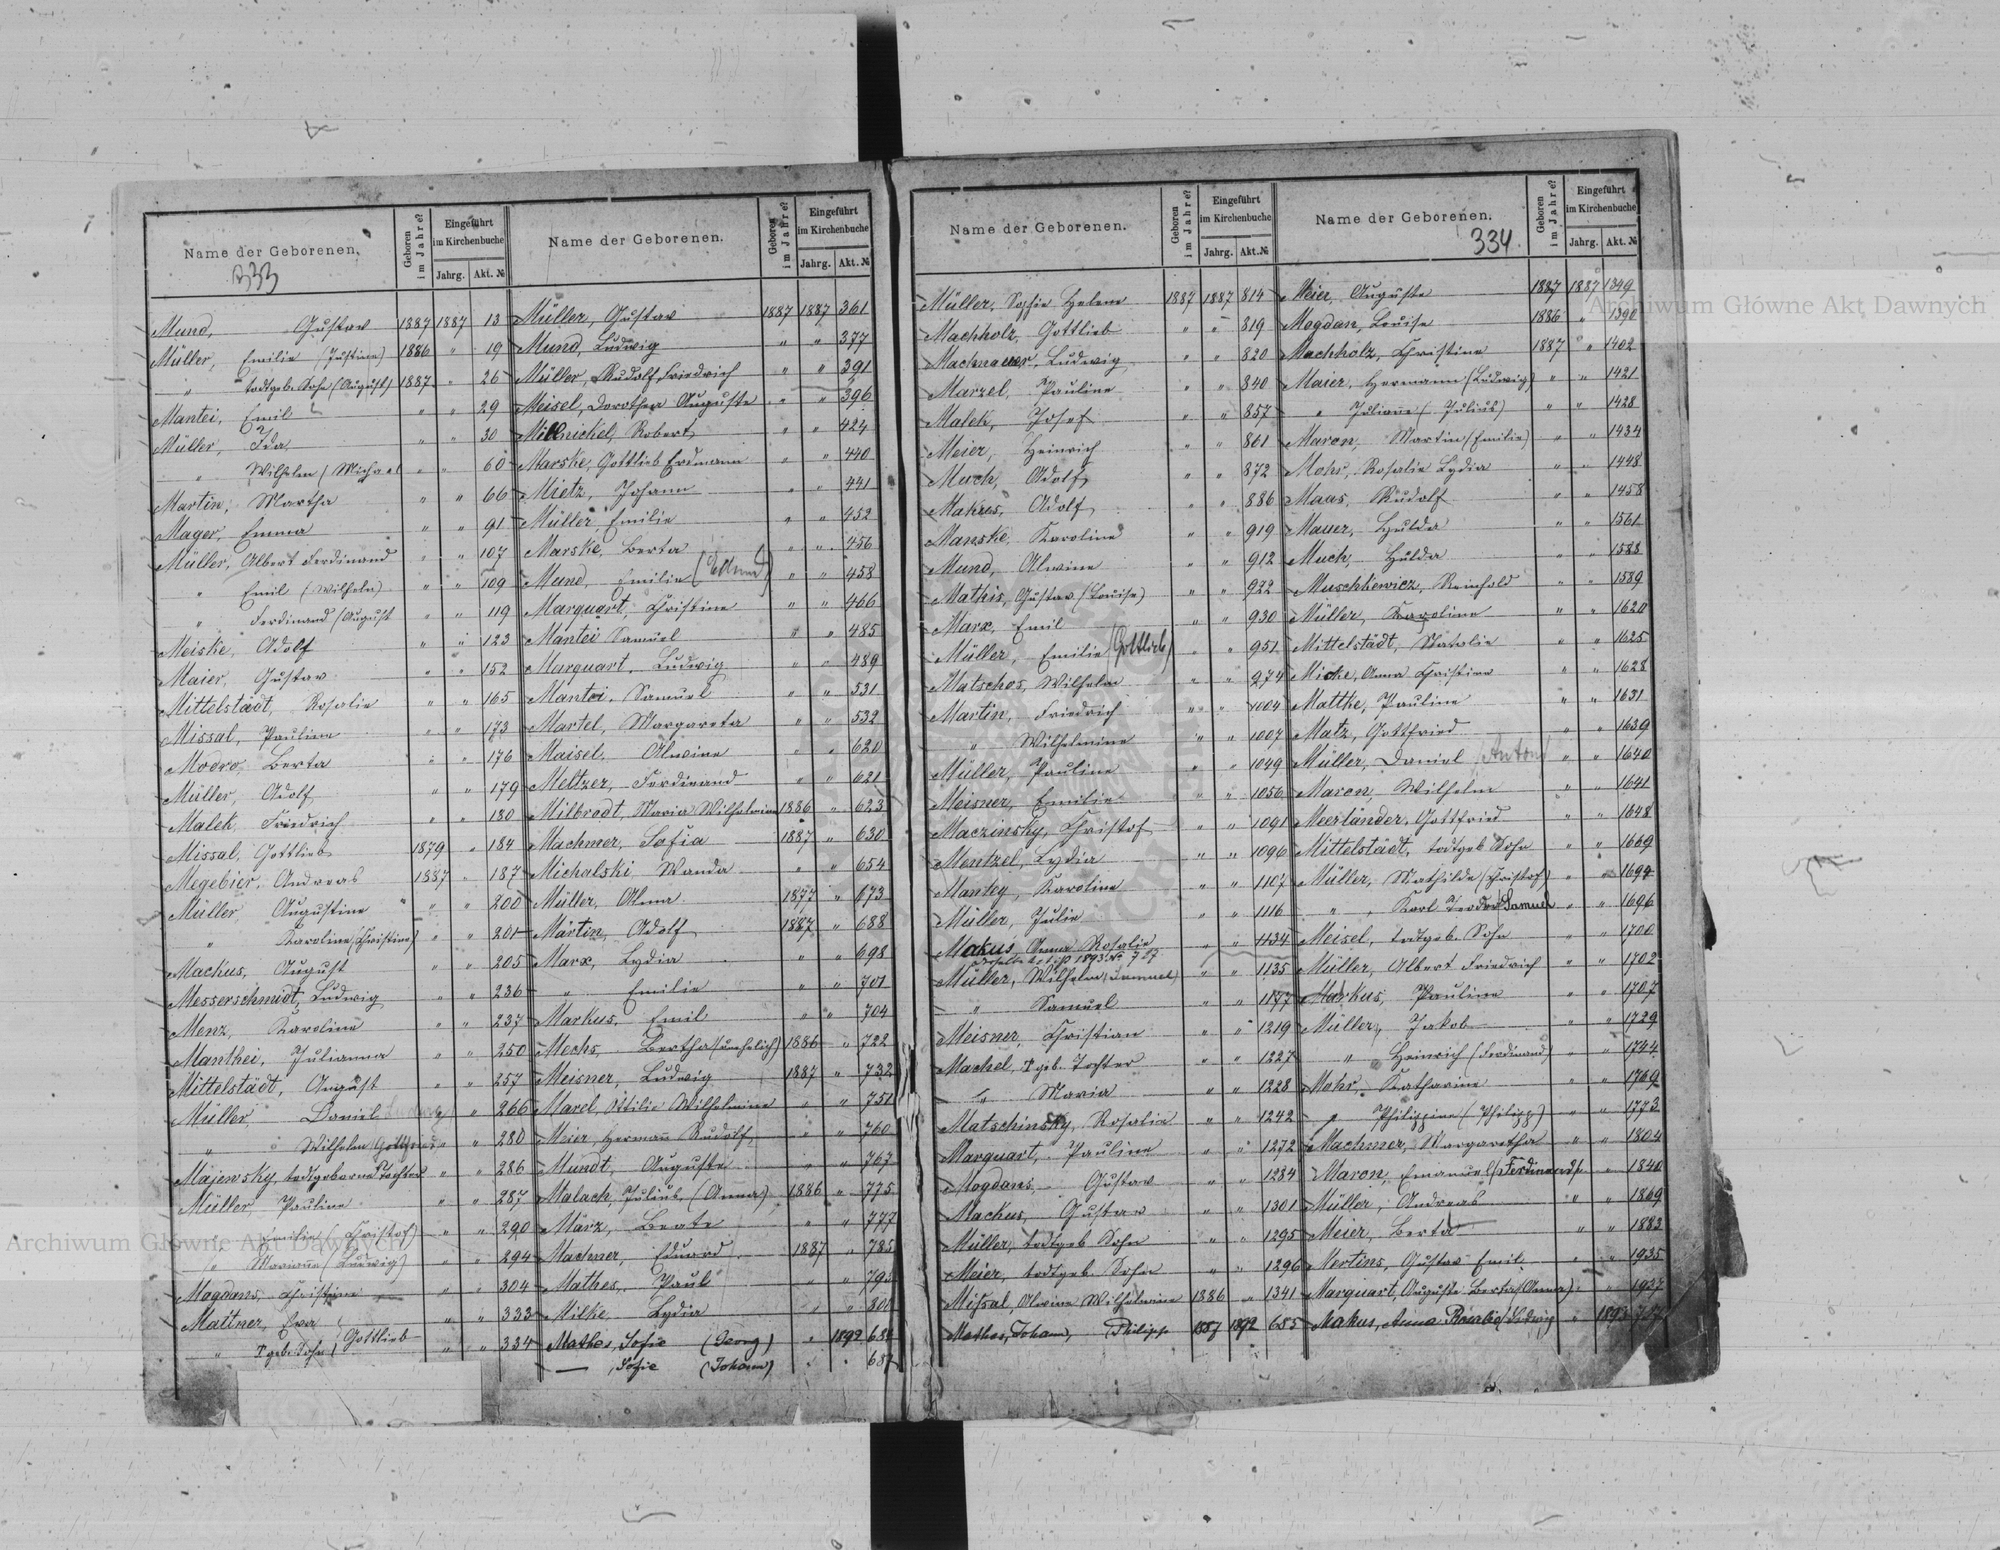 Name der Geborenen.
Geboren im Jahre?
Eingeführt im Kirchenbuche
Jahrg. Akt. №
333
Mund, Gustav 1887 1887 13
Müller, Emilie (Justine) 1886 " 19
" todtgeb. Sohn (August) 1887 " 26
Mantei, Emil " " 29
Müller, Ida " " 30
" Wilhelm (Michael " " 60
Martin, Martha " " 66
Mager, Emma " " 91
Müller, Albert Ferdinand " " 107
" Emil (Wilhelm) " " 109
" Ferdinand (August " " 119
Meiske, Adolf " " 123
Maier, Gustav " " 152
Mittelstädt, Rosalie " " 165
Missal, Pauline " " 173
Modro, Berta " " 176
Müller, Adolf " " 179
Malek, Friedrich " " 180
Missal, Gottlieb 1879 " 184
Megebier, Andreas 1887 " 187
Müller, Augustine " " 200
" Karoline (Christine) " " 201
Mackus, August " " 205
Messerschmidt, Ludwig " " 236
Menz, Karoline " " 237
Manthei, Julianna " " 250
Mittelstädt, August " " 257
Müller, Daniel Ludwig " " 266
" Wilhelm Gottfried " " 280
Majewsky, todtgeborne Tochter " " 286
Müller, Pauline " " 287
" Emilie (Christof) " " 290
" Marianne (Ludwig) " " 294
Magdans, Christine " " 304
Mattner, Eva " " 333
" T geb. Sohn (Gottlieb " " 334
Name der Geborenen.
Geboren im Jahre?
Eingeführt im Kirchenbuche
Jahrg. Akt. №
Müller, Gustav 1887 1887 361
Mund, Ludwig " " 377
Müller, Rudolf Friedrich " " 391
Meisel, Dorothea Auguste " " 396
Millnickel, Robert " " 424
Marske, Gottlieb Erdmann " " 440
Mietz, Johann " " 441
Müller, Emilie " " 452
Marske, Berta " " 456
Mund, Emilie " " 458
Marquart, Christine " " 466
Mantei Samuel " " 485
Marquart, Ludwig " " 489
Mantei, Samuel " " 531
Martel, Margareta " " 532
Maisel, Alwine " " 620
Meltzer, Ferdinand " " 621
Milbrodt, Maria Wilhelmine 1886 " 623
Machmer, Sofia 1887 " 630
Michalski, Wanda " " 654
Müller, Alma 1877 " 673
Martin, Adolf 1887 " 688
Marx, Lydia " " 698
" Emilie " " 701
Markus, Emil " " 704
Mechs, Bertha (unehelich) 1886 " 722
Meisner, Ludwig 1887 " 732
Marel, Ottilie Wilhelmine " " 751
Meier, Hermann Rudolf " " 760
Mundt, Auguste " " 767
Malach, Julius (Anna) 1886 " 775
März, Beate " " 777
Machmer, Eduard 1887 " 785
Mathes, Paul " " 793
Milke, Lydia " " 800
Mathes, Sofie (Georg) " 1892 684
— , Sofie (Johann) " " 687
Name der Geborenen.
Geboren im Jahre?
Eingeführt im Kirchenbuche
Jahrg. Akt. №
Müller, Sophie Helene 1887 1887 814
Machholz, Gottlieb " " 819
Machnauer, Ludwig " " 820
Marzel, Pauline " " 840
Malek, Josef " " 857
Meier, Heinrich " " 861
Much, Adolf " " 872
Makus, Adolf " " 886
Manske, Karoline " " 919
Mund, Alwine " " 912
Mathis, Gustav (Louise) " " 922
Marx, Emil " " 930
Müller, Emilie (Gottlieb) " " 951
Matschos, Wilhelm " " 974
Martin, Friedrich " " 1004
" Wilhelmine " " 1007
Müller, Pauline " " 1049
Meisner, Emilie " " 1056
Maczinsky, Christof " " 1091
Mentzel, Lydia " " 1096
Mantey, Karoline " " 1107
Müller, Julie " " 1116
Makus, Anna Rosalie " " 1134
1893 № 757
Müller, Wilhelm (Samuel) " " 1135
" Samuel " " 1177
Meisner, Christian " " 1219
Machel, T geb. Tochter " " 1227
" Maria " " 1228
Matschinsky, Rosalie " " 1242
Marquart, Pauline " " 1272
Mogdans, Gustav " " 1284
Mackus, Gustav " " 1301
Müller, todtgeb Sohn " " 1295
Meier, todtgeb. Sohn " " 1296
Missal, Alwine Wilhelmine 1886 " 1341
Mathes, Johann, Philipp 1887 1892 685
Name der Geborenen.
Geboren im Jahre?
Eingeführt im Kirchenbuche
Jahrg. Akt. №
334.
Meier, Auguste 1887 1887 1349
Mogdan, Louise 1886 " 1390
Machholz, Christine 1887 " 1402
Maier, Hermann (Ludwig) " " 1421
" Julianne (Julius) " " 1428
Maron, Martin (Emilie) " " 1434
Mohr, Rosalie Lydia " " 1448
Maas, Rudolf " " 1458
Mauer, Hulda " " 1561
Much, Hulda " " 1588
Muschkewicz, Reinhold " " 1589
Müller, Karoline " " 1620
Mittelstädt, Natalie " " 1625
Micke, Anna Christine " " 1628
Matthe, Pauline " " 1631
Matz, Gottfried " " 1639
Müller, Daniel (Anton) " " 1640
Maron, Wilhelm " " 1641
Meerländer, Gottfried " " 1648
Mittelstädt, todtgeb Sohn " " 1669
Müller, Mathilde (Christof) " " 1694
" , Karl Teodor Samuel " " 1696
Meisel, todtgeb. Sohn " " 1700
Müller, Albert Friedrich " " 1702
Markus, Pauline " " 1707
Müller, Jakob " " 1729
" Heinrich (Ferdinand) " " 1744
Mohr, Katharine " " 1769
" Philippine (Philipp) " " 1773
Machmer, Margaretha " " 1804
Maron, Emanuel (Ferdinand) " " 1840
Müller, Andreas " " 1869
Meier, Berta " " 1883
Mertins, Gustav Emil " " 1935
Marquart, Auguste Berta (Anna) " " 1937
Makus, Anna Rosalie (Ludwig " 1893 757
Archiwum Główne Akt Dawnych
Archiwum Główne Akt Dawnych